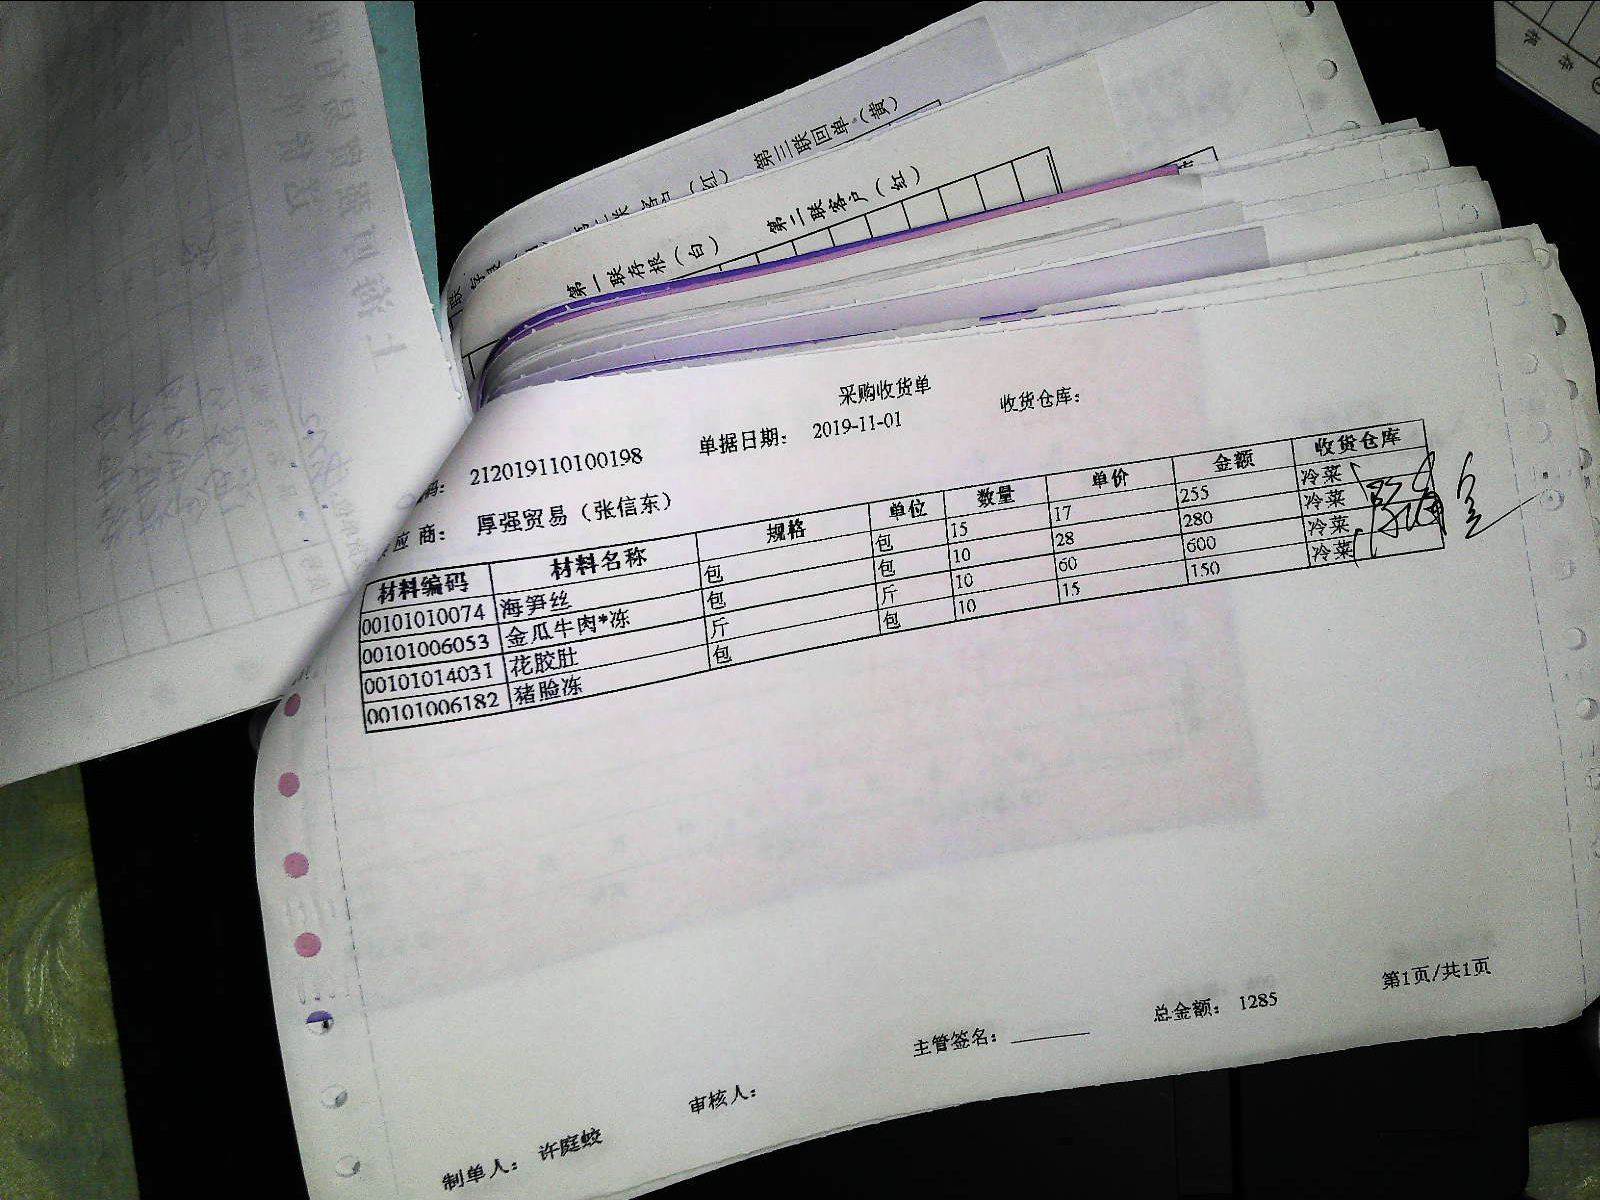 第三联回单（黄）
第二联客户（红）
第一联存根（白）
采购收货单
码： 212019110100198 单据日期： 2019-11-01 收货仓库：
应商： 厚强贸易（张信东）
材料编码 材料名称 规格 单位 数量 单价 金额 收货仓库
00101010074 海笋丝 包 包 15 17 255 冷菜
00101006053 金瓜牛肉*冻 包 包 10 28 280 冷菜
00101014031 花胶肚 斤 斤 10 60 600 冷菜
00101006182 猪脸冻 包 包 10 15 150 冷菜
制单人： 许庭蛟 审核人： 主管签名： 总金额： 1285 第1页/共1页